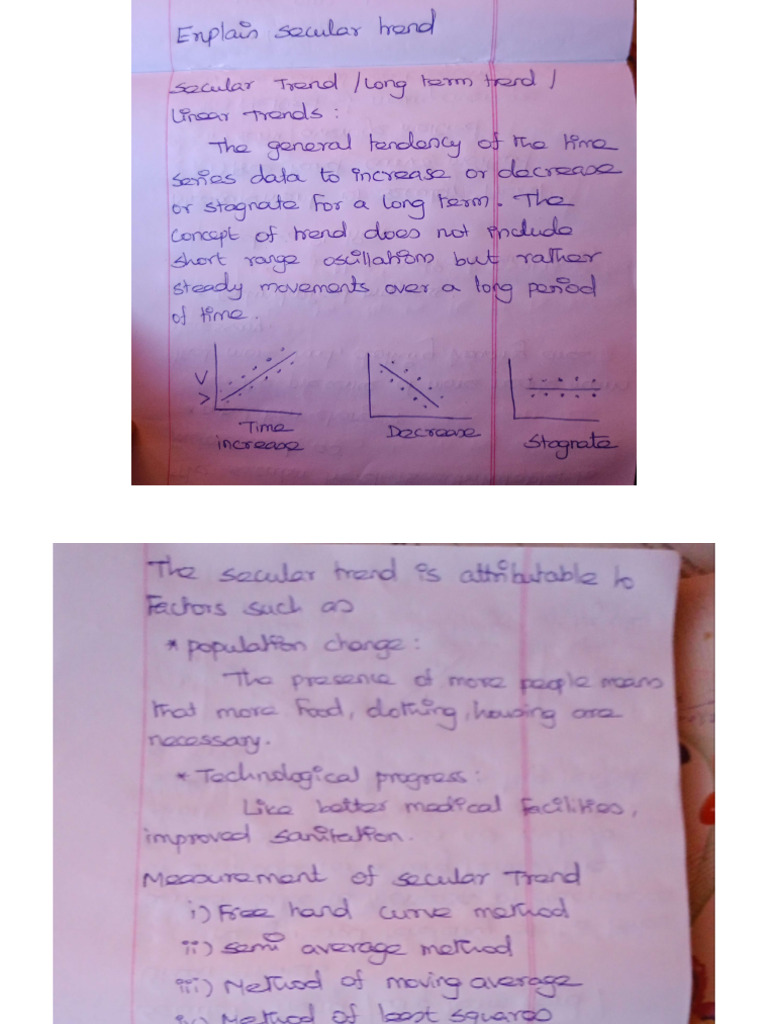 Explain secular trend
Secular Trend / Long term trend /
Linear Trends :
The general tendency of the time
series data to increase or decrease
or stagnate for a long term. The
concept of trend does not include
short range oscillation but rather
steady movements over a long period
of time.
V
>
Time
increase
Decrease
Stagnate
The secular trend is attributable to
Factors such as
* population change :
The presence of more people means
that more Food, clothing, housing are
necessary.
* Technological progress :
Like better medical facilities,
improved sanitation.
Measurement of secular Trend
i) Free hand curve method
ii) semi average method
iii) Method of moving average
iv) Method of least squares